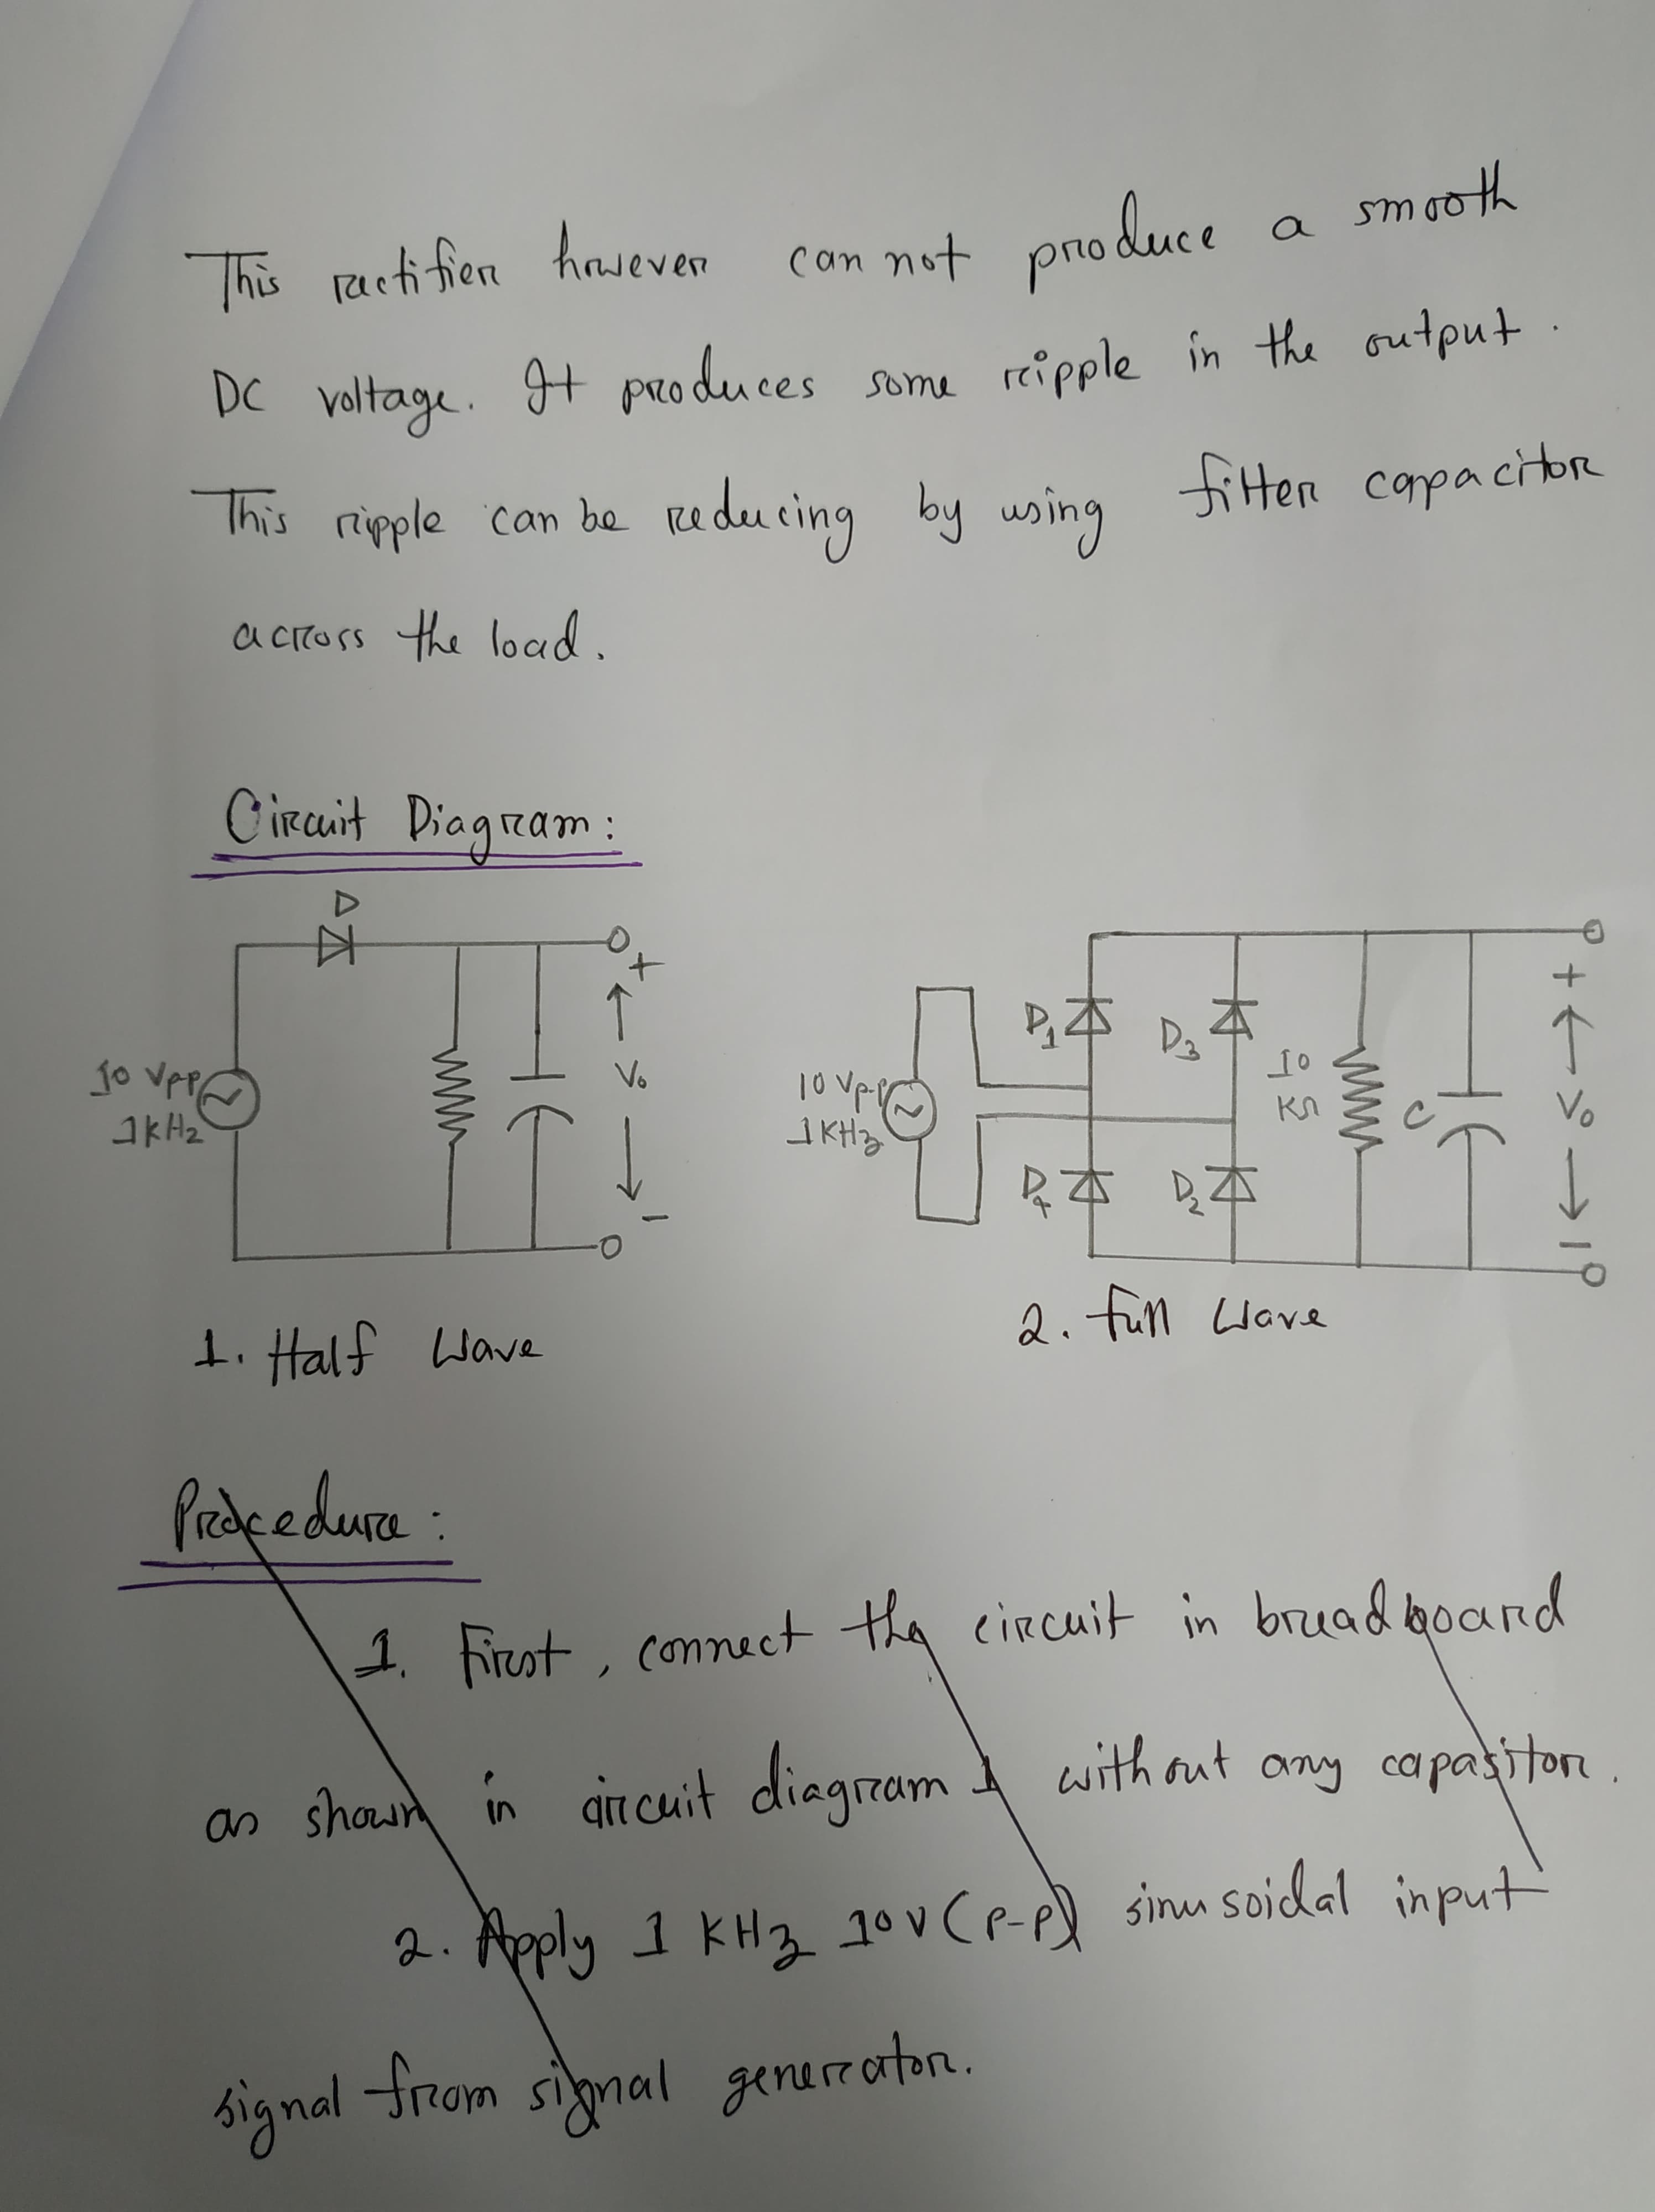 This rectifier however can not produce a smooth
DC voltage. It produces some ripple in the output.
This ripple can be reducing by using filter capacitor
across the load.
Circuit Diagram:
D
+
10 Vpp
1kHz
Vo
-
1. Half Wave
D1
D3
10 Vp-p
1KHz
10
KΩ
C
+
Vo
-
D4
D2
2. Full Wave
Procedure:
1. First, connect the circuit in breadboard
as shown in circuit diagram 1 without any capasitor.
2. Apply 1 KHz 10v (p-p) sinusoidal input
signal from signal generator.